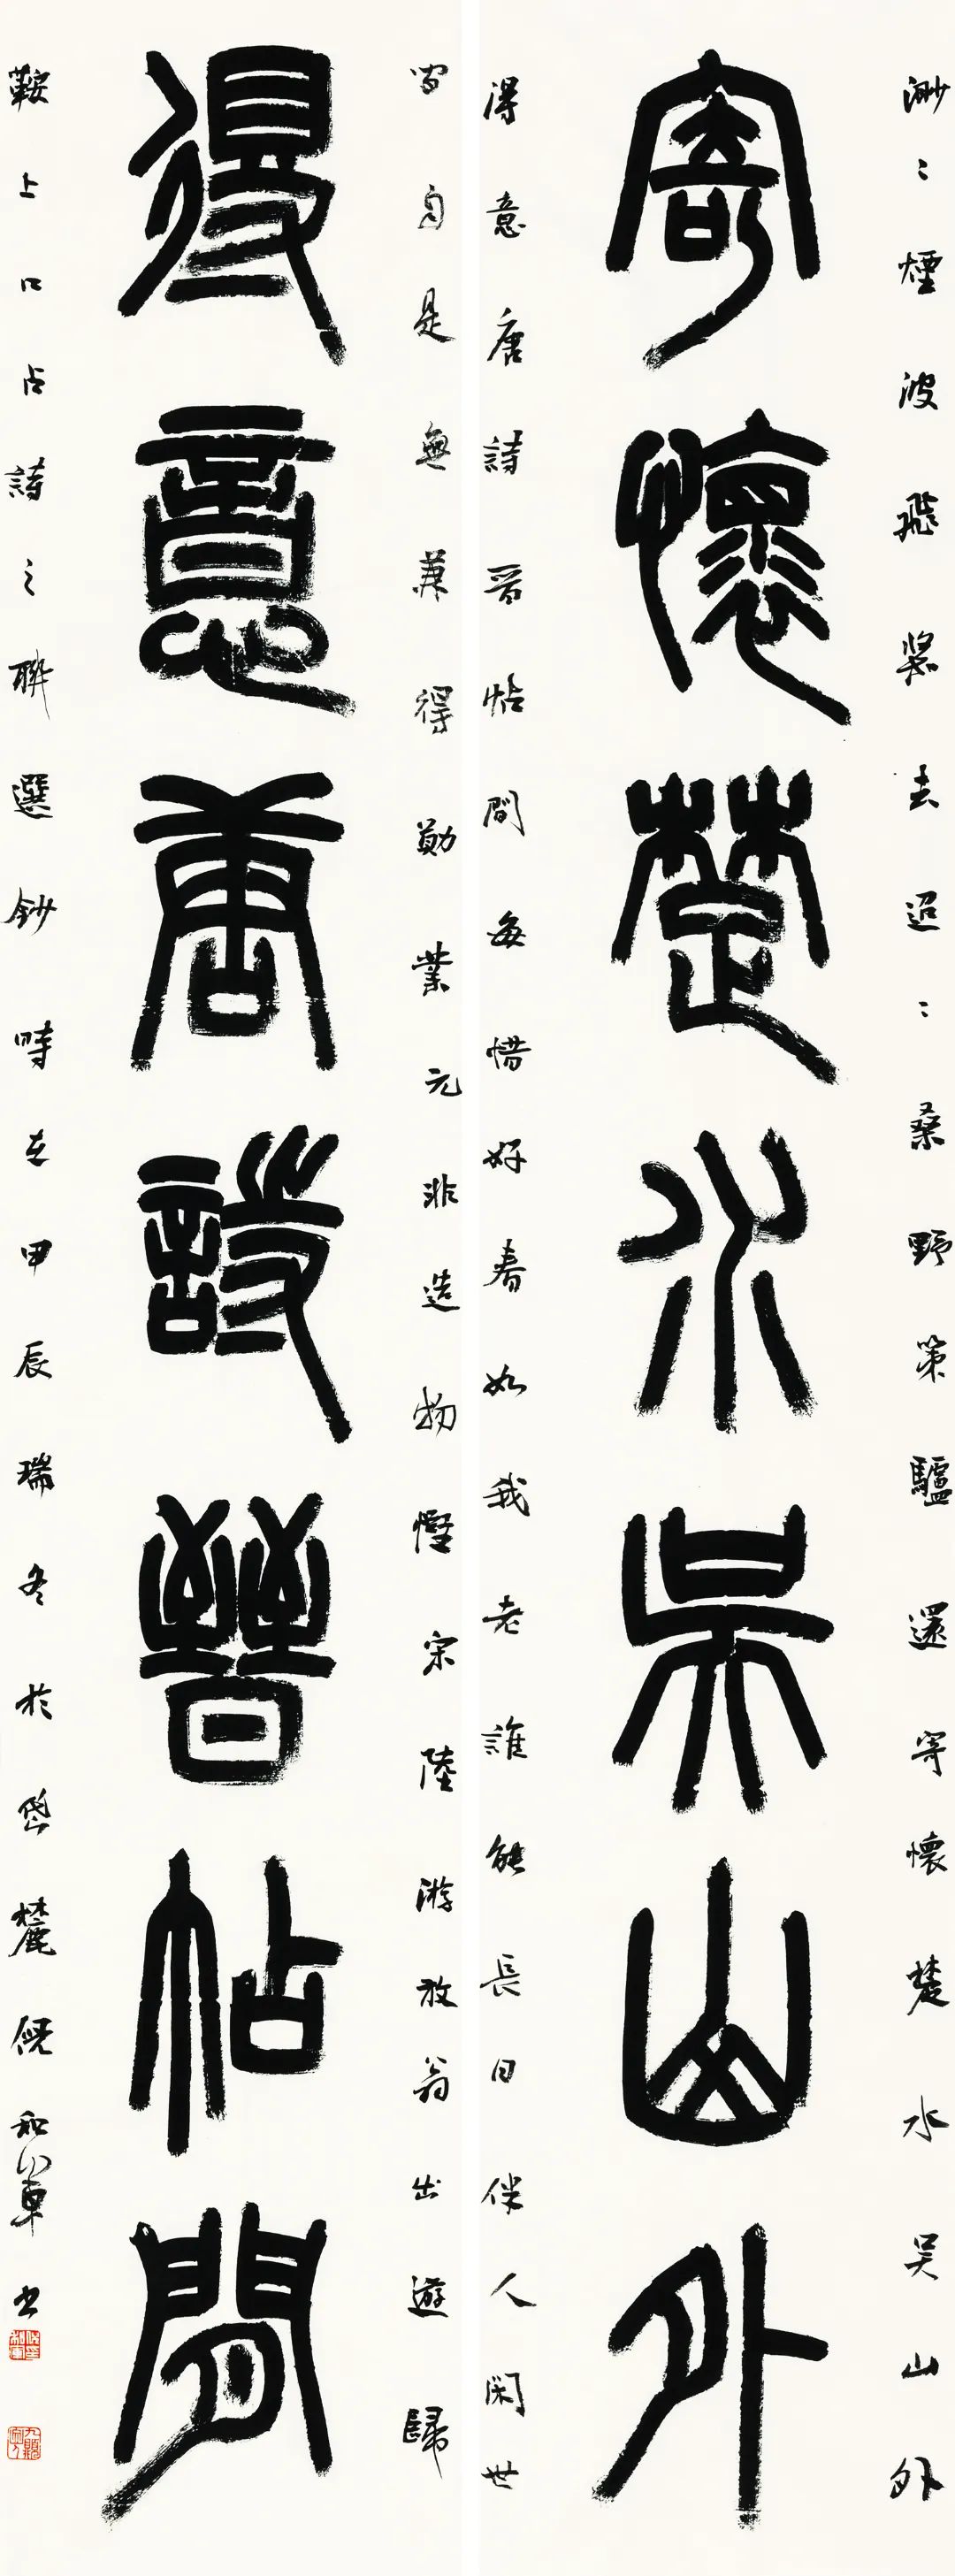 渺〻煙波飛槳去迢〻桑野策驢還寄懷楚水吳山外
寄懷楚水吳山外
得意唐詩晋帖間每惜好春如我老誰能長日伴人閑世
間自是無兼得勛業元非造物慳宋陸游放翁出遊歸
得意唐詩晉帖間
鞍上口占詩之聯選鈔時在甲辰瑞冬於岱麓倪和軍书